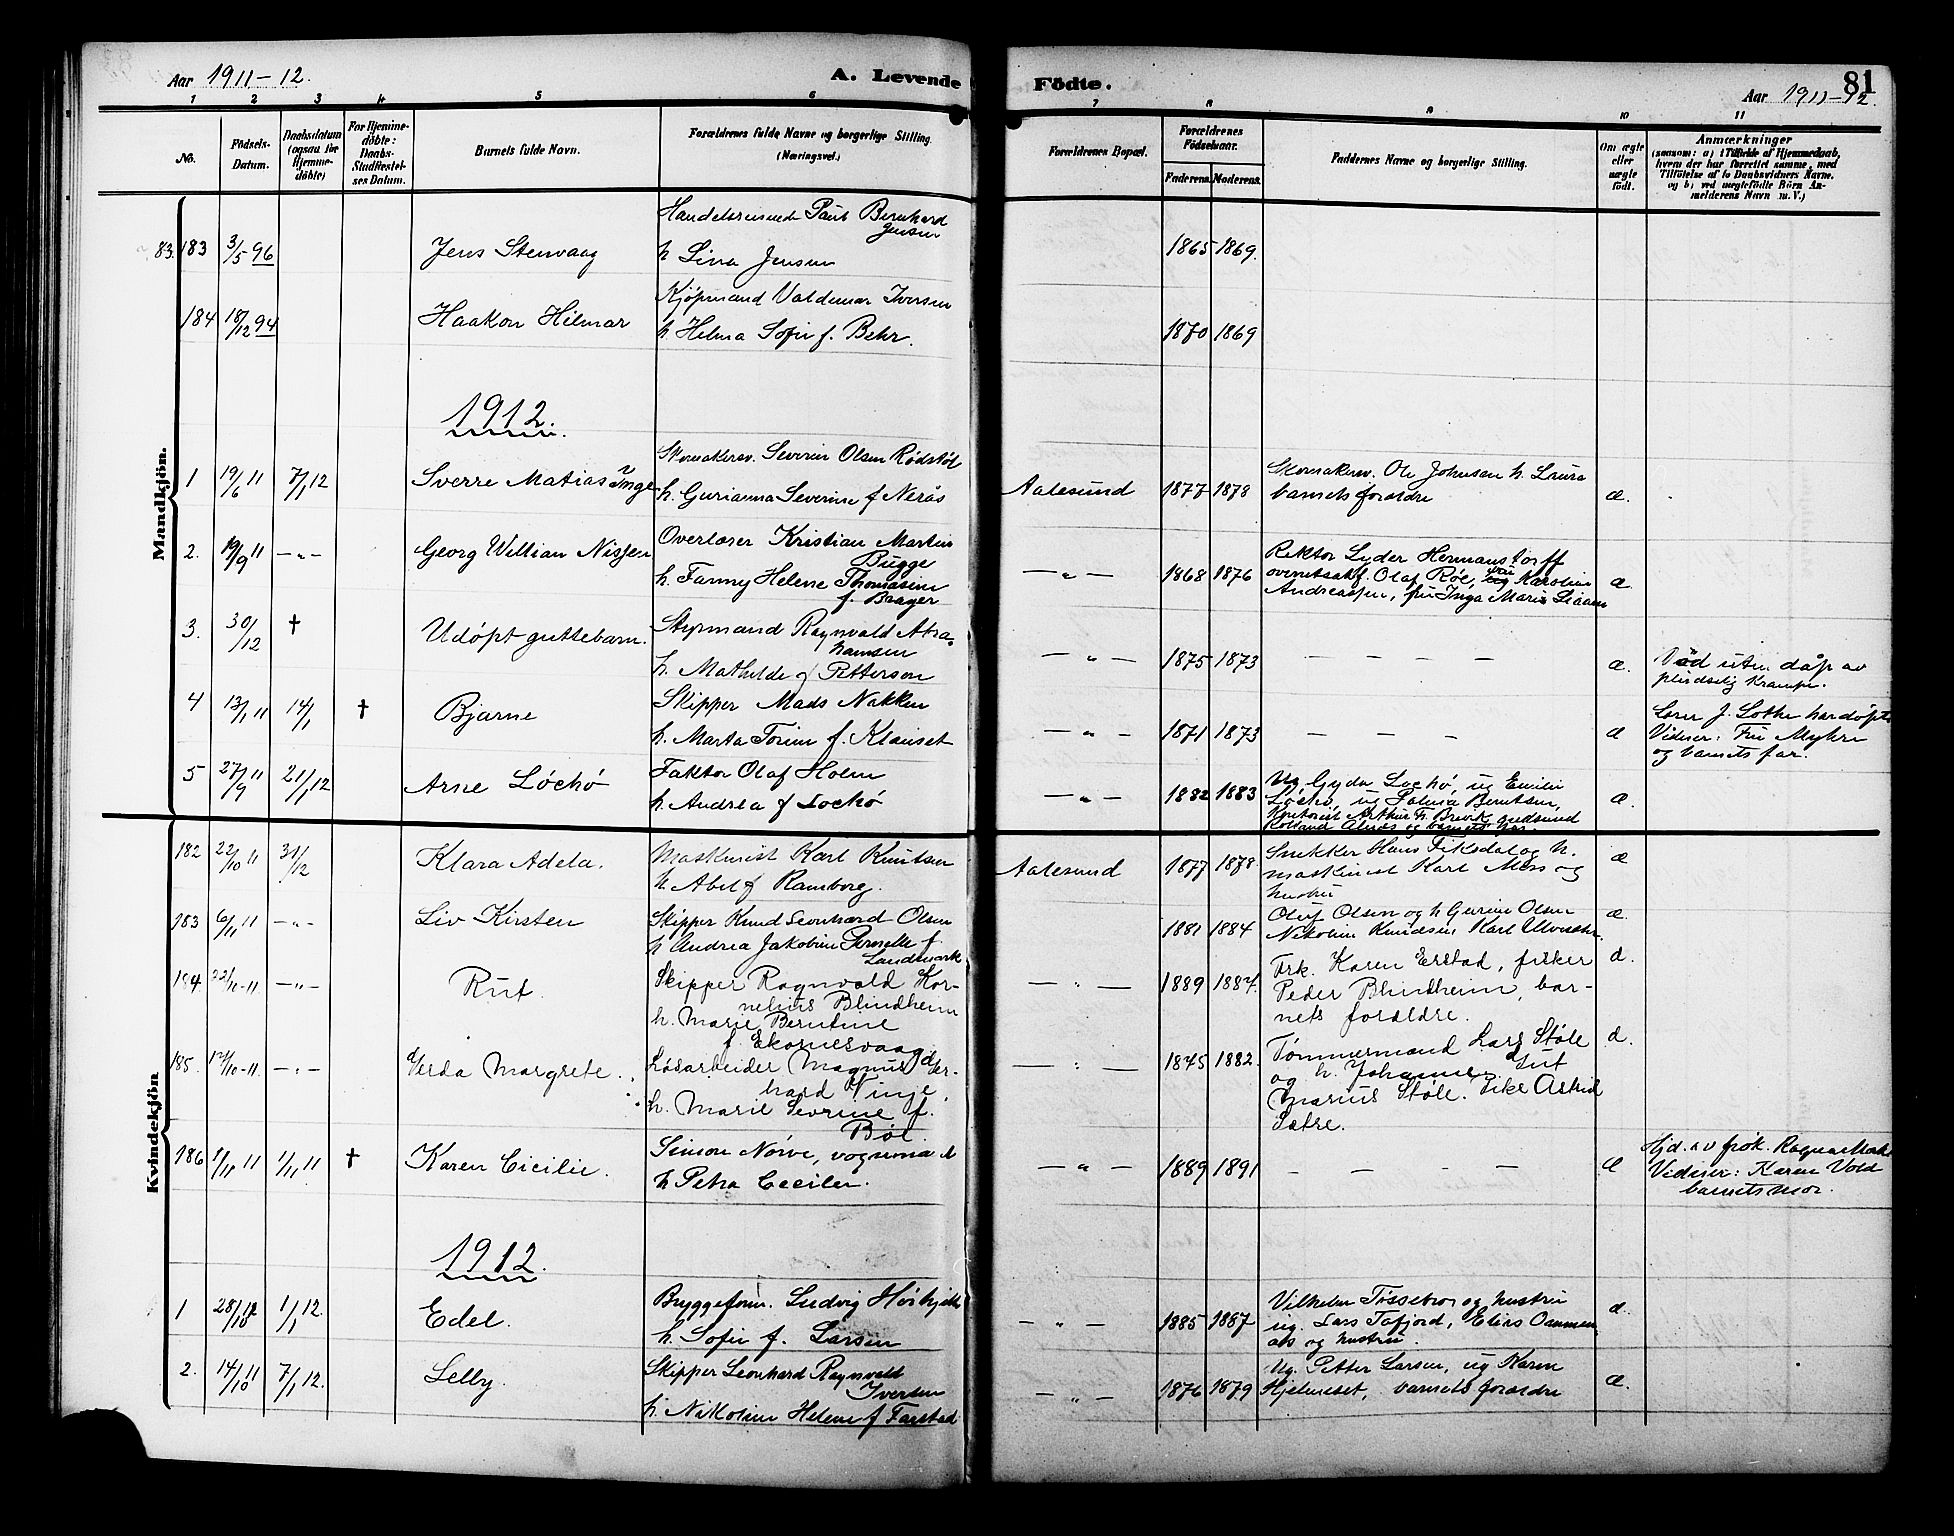 Aar 1911-12.
A. Levende Födte.
Aar 1911-12.
81
1 2 3 4 5 6 7 8 9 10 11
No.
Födsels-Datum.
Daabsdatum (ogsaa for Hjemmedöbte)
For Hjemmedöbte: Daabs-Stadfæstelses Datum.
Barnets fulde Navn.
Forældrenes fulde Navne og borgerlige Stilling. (Næringsvei.)
Forældrenes Bopæl.
Forældrenes Födselsaar.
Faderens. Moderens.
Faddernes Navne og borgerlige Stilling.
Om ægte eller uægte födt.
Anmærkninger
(saasom: a) i Tilfælde af Hjemmedaab, hvem der har forrettet samme, med Tilföielse af to Daabsvidners Navne. og b) ved uægtefödte Börn Anmelderens Navn m.V.)
Mandkjön.
83. 183 3/5 96 Jens Stenvaag Handelsreisende Paul Bernhard Jensen
h Lina Jensen 1865 1869.
184 18/12 94 Haakon Hilmar Kjöpmand Valdemar Iversen
h Helma Sofie f. Behr. 1870 1869
1912.
1 19/6 11 7/1 12 Sverre Matias Inge Skomakersv. Severin Olsen Rødstøl
h. Gurianna Severine f Nerås Aalesund 1877 1878 Skomakersv. Ole Johnsen h. Laura
barnets forældre æ.
2. 19/9 11 —„— Georg William Nissen Overlærer Kristian Martin Bugge
h. Fanny Helene Thomasine
f. Baager —„— 1868 1876 Rektor Lyder Hermanstorff
overretssakf. Olaf Røe, fru Karoline
Andreassen, fru Inga Marie Liaaen æ
3. 30/12 † Udöpt guttebarn. Styrmand Ragnvald Abrahamsen
h. Mathilde f Petterson —„— 1875 1873 — — — — æ. Död uten dåp av
pludselig Krampe.
4 13/1 11 14/1 † Bjarne Skipper Mads Nakken
h. Marta Torine f. Klauset —„— 1871 1873 — — — æ Lærer J. Lothe har döpt
Vidner: Fru Myhre
og barnets far.
5 27/9 11 21/1 12 Arne Löchö Faktor Olaf Holm
h. Andrea f Lochö —„— 1882 1883 Ug Gyda Lochö, ug Emilie
Löchö, ug Palma Berntsen,
Kontorist Arthur F. Brevik, gudsmand
Rolland Alnæs og barnets far. æ.
Kvindekjön
182 22/10 11 31/12 Klara Adela. Maskinist Karl Knutsen
h Abel f Ramborg. Aalesund 1877 1878. Snekker Hans Fiksdal og h.
maskinist Karl Moss og
hustru æ
183 6/11 11 —„— Liv Kirsten Skipper Knud Leonhard Olsen
h Andrea Jakobine Pernelle f.
Landmark 1881 1884 Oluf Olsen og h Gurine Olsen
Nikoline Knudsen Karl Ulvestar. æ.
184. 22/10-11. —„— Rut. Skipper Ragnvald Kornelius Blindheim
h. Marie Berntine
f. Ekornesvaag —„— 1889 1887. Frk. Karen Erstad, fisker
Peder Blindheim, barnets
forældre. æ.
185. 12/10-11. —„— Gerda Margrete. Løsarbeider Magnus Gerhard Vinje,
h. Marie Sevrine f.
Böe. —„— 1845 1882. Tømmermand Lars Støle
og h. Johanne. Gut
Marius Støle. Pike Astrid
Sætre. æ.
186 1/11 11 1/11 11 † Karen Cicilie. Simon Nörve, vognmand
h Petra Cecilie. —„— 1889 1891 — — — — æ Hjd. av frök. Ragna Mork
Vidner: Karen Vold
barnets mor.
1912.
1 28/10 1/1 12. Edel. Bryggeform. Ludvig
h. Sofie f. Larsen —„— 1885 1887 Vilhelm Tössebro og hustru
ug. Lars Tafjord, Elias
og hustru. æ.
2. 14/10 11 7/1 12. Selby. Skipper Leonhard Ragnvald
Iversen
h. Nikoline Helene f Farstad —„— 1876 1879 Ug. Petter Larsen, ug Karen
Hjelmeset, barnets forældre æ.